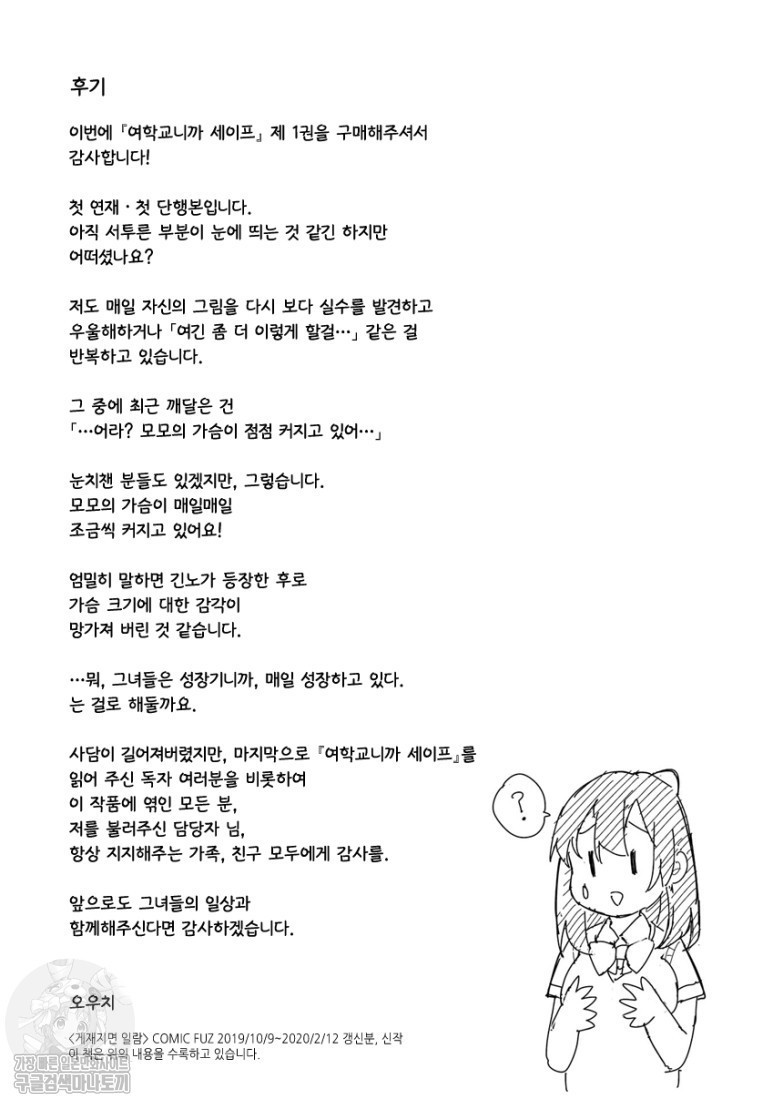 후기
이번에 『여학교니까 세이프』 제 1권을 구매해주셔서
감사합니다!
첫 연재 · 첫 단행본입니다.
아직 서투른 부분이 눈에 띄는 것 같긴 하지만
어떠셨나요?
저도 매일 자신의 그림을 다시 보다 실수를 발견하고
우울해하거나 「여긴 좀 더 이렇게 할걸…」 같은 걸
반복하고 있습니다.
그 중에 최근 깨달은 건
「…어라? 모모의 가슴이 점점 커지고 있어…」
눈치챈 분들도 있겠지만, 그렇습니다.
모모의 가슴이 매일매일
조금씩 커지고 있어요!
엄밀히 말하면 긴노가 등장한 후로
가슴 크기에 대한 감각이
망가져 버린 것 같습니다.
…뭐, 그녀들은 성장기니까, 매일 성장하고 있다.
는 걸로 해둘까요.
사담이 길어져버렸지만, 마지막으로 『여학교니까 세이프』를
읽어 주신 독자 여러분을 비롯하여
이 작품에 엮인 모든 분,
저를 불러주신 담당자 님,
항상 지지해주는 가족, 친구 모두에게 감사를.
앞으로도 그녀들의 일상과
함께해주신다면 감사하겠습니다.
?
오우치
<게재지면 일람> COMIC FUZ 2019/10/9~2020/2/12 갱신분, 신작
이 책은 위의 내용을 수록하고 있습니다.
가장 빠른 일본만화사이트
구글검색마나토끼